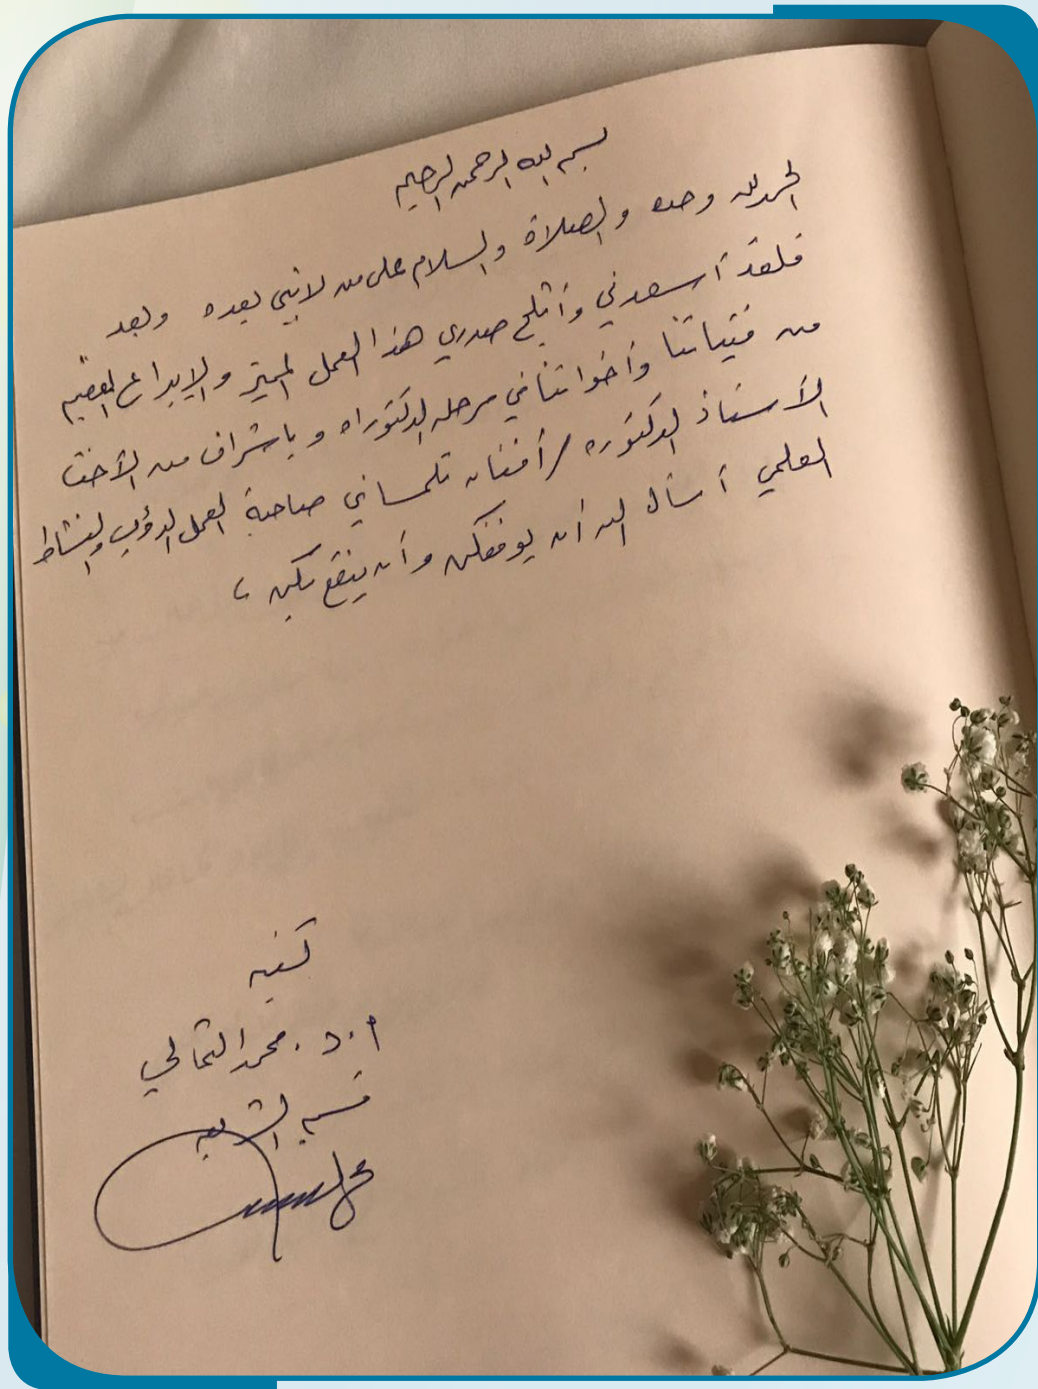 بسم الله الرحمن الرحيم
الحمد لله وحده والصلاة والسلام على من لا نبي بعده وبعد
فلقد أسعدني وأثلج صدري هذا العمل المميز والإبداع العظيم
من فتياتنا وأخواتنا في مرحلة الدكتوراه وبإشراف من الأخت
الأستاذ الدكتوره / أفنان تلمساني صاحبة العمل الدؤوب والنشاط
العلمي أسأل الله أن يوفقكن وأن ينفع بكن ،
كتبه
أ.د. محمد الثمالي
قسم الشريعة